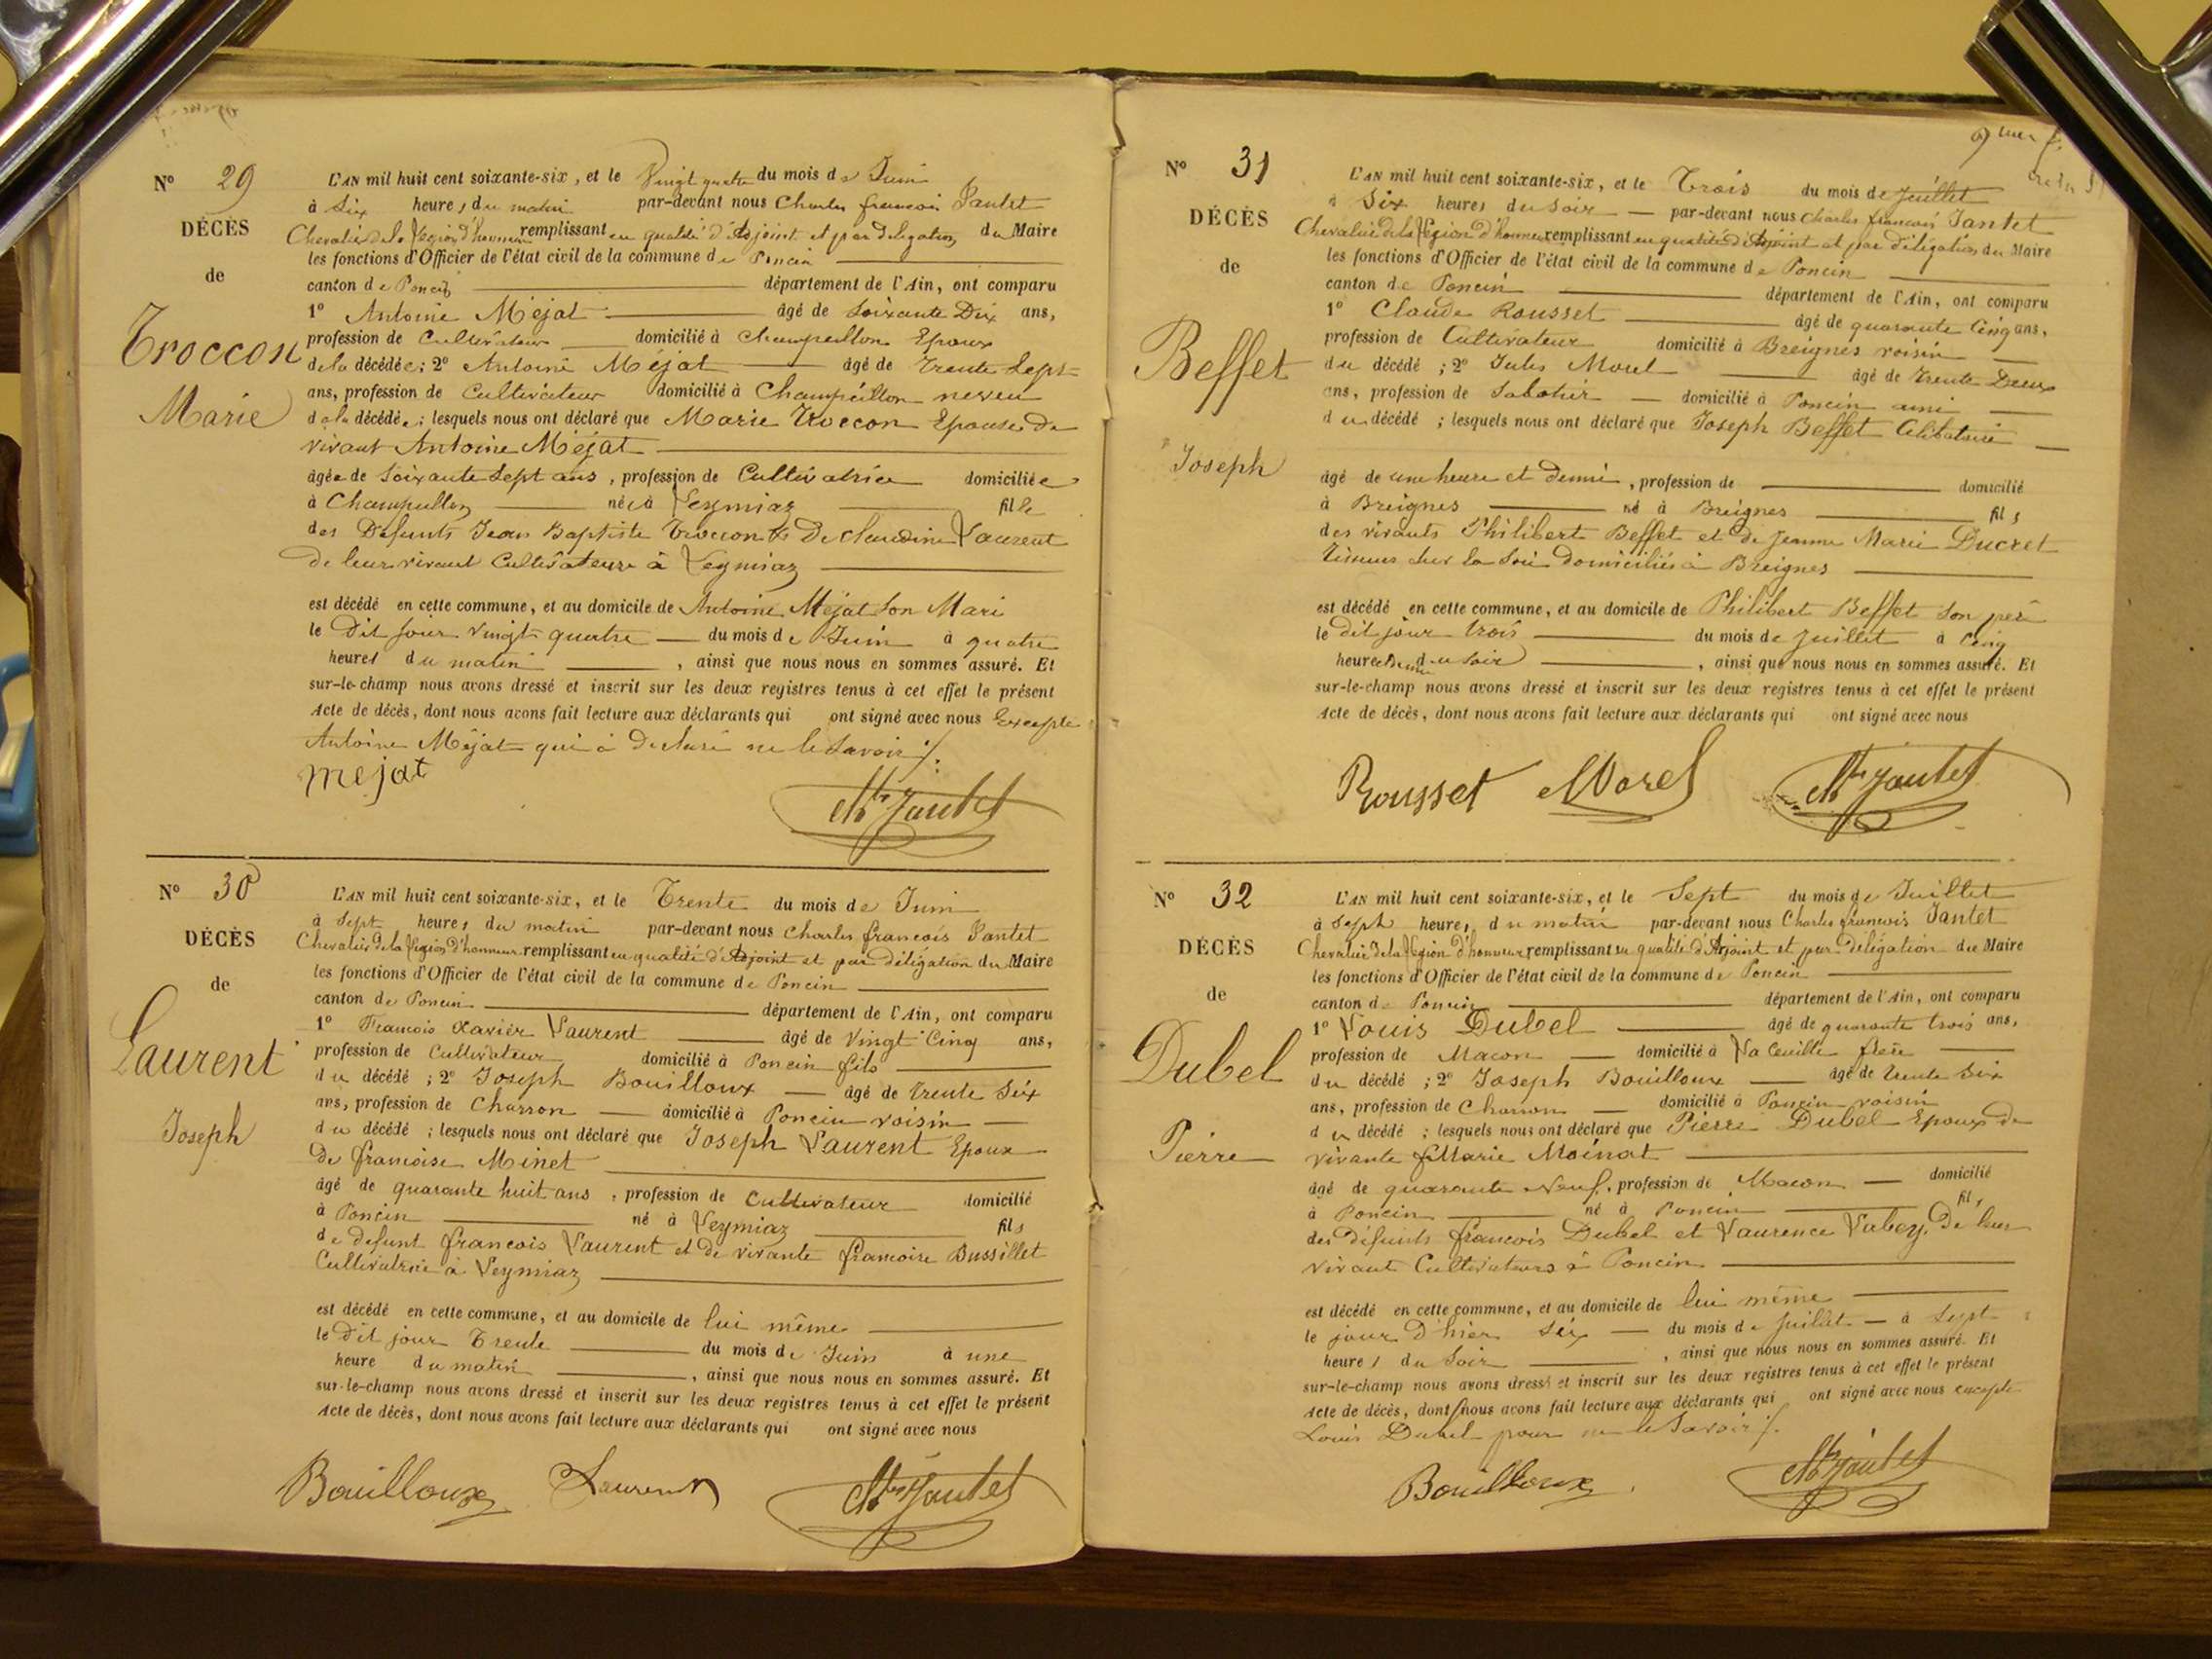 N° 29
DÉCÈS
de
Troccon
Marie
L'AN mil huit cent soixante-six, et le Vingt quatre du mois de Juin
à Six heures du matin par-devant nous Charles françois Jantet
Chevalier de la Légion d'honneur remplissant en qualité d'Adjoint et par délégation du Maire
les fonctions d'Officier de l'état civil de la commune de Poncin
canton de Poncin département de l'Ain, ont comparu
1° Antoine Méjat âgé de Soixante Dix ans,
profession de Cultivateur domicilié à Champeillon Epoux
de la décédée ; 2° Antoine Méjat âgé de Trente Sept
ans, profession de Cultivateur domicilié à Champeillon neveu
de la décédée ; lesquels nous ont déclaré que Marie Troccon Epouse de
vivant Antoine Méjat
âgée de Soixante Sept ans, profession de Cultivatrice domiciliée
à Champeillon née à Leymiaz fille
des Défunts Jean Baptiste Troccon & De claudine Laurent
de leur vivant Cultivateurs à Leymiaz
est décédé en cette commune, et au domicile de Antoine Méjat Son Mari
le Dit jour Vingt quatre du mois de Juin à quatre
heures du matin , ainsi que nous nous en sommes assuré. Et
sur-le-champ nous avons dressé et inscrit sur les deux registres tenus à cet effet le présent
Acte de décès, dont nous avons fait lecture aux déclarants qui ont signé avec nous Excepté
Antoine Méjat qui à Déclaré ne le Savoir ./.
mejat Jantet
N° 30
DÉCÈS
de
Laurent
Joseph
L'AN mil huit cent soixante-six, et le Trente du mois de Juin
à Sept heures du matin par-devant nous Charles francois Jantet
Chevalier de la Légion d'honneur remplissant en qualité d'Adjoint et par délégation du Maire
les fonctions d'Officier de l'état civil de la commune de Poncin
canton de Poncin département de l'Ain, ont comparu
1° Francois Xavier Laurent âgé de Vingt Cinq ans,
profession de Cultivateur domicilié à Poncin fils
du décédé ; 2° Joseph Bouilloux âgé de Trente Six
ans, profession de Charron domicilié à Poncin voisin
du décédé ; lesquels nous ont déclaré que Joseph Laurent Epoux
De francoise Minet
âgé de quarante huit ans, profession de Cultivateur domicilié
à Poncin né à Leymiaz fils
de défunt francois Laurent et de vivante francoise Bussillet
Cultivatrice à Leymiaz
est décédé en cette commune, et au domicile de lui même
le Dit jour Trente du mois de Juin à une
heure du matin , ainsi que nous nous en sommes assuré. Et
sur-le-champ nous avons dressé et inscrit sur les deux registres tenus à cet effet le présent
Acte de décès, dont nous avons fait lecture aux déclarants qui ont signé avec nous
Bouilloux Laurent Jantet
N° 31
DÉCÈS
de
Beffet
Joseph
L'AN mil huit cent soixante-six, et le Trois du mois de Juillet
à Six heures du Soir par-devant nous Charles francois Jantet
Chevalier de la Légion d'honneur remplissant en qualité d'Adjoint et par délégation du Maire
les fonctions d'Officier de l'état civil de la commune de Poncin
canton de Poncin département de l'Ain, ont comparu
1° Claude Rousset âgé de quarante Cinq ans,
profession de Cultivateur domicilié à Breignes voisin
du décédé ; 2° Jules Morel âgé de Trente Deux
ans, profession de Sabotier domicilié à Poncin ami
du décédé ; lesquels nous ont déclaré que Joseph Beffet Célibataire
âgé de une heure et demi, profession de domicilié
à Breignes né à Breignes fils
des vivants Philibert Beffet et de Jeanne Marie Ducret
Domiciliés à Breignes
est décédé en cette commune, et au domicile de Philibert Beffet Son père
le dit jour trois du mois de Juillet à Cinq
heures Demi du Soir , ainsi que nous nous en sommes assuré. Et
sur-le-champ nous avons dressé et inscrit sur les deux registres tenus à cet effet le présent
Acte de décès, dont nous avons fait lecture aux déclarants qui ont signé avec nous
Rousset Morel Jantet
N° 32
DÉCÈS
de
Dubel
Pierre
L'AN mil huit cent soixante-six, et le Sept du mois de Juillet
à Sept heures du matin par-devant nous Charles francois Jantet
Chevalier de la Légion d'honneur remplissant en qualité d'Adjoint et par délégation du Maire
les fonctions d'Officier de l'état civil de la commune de Poncin
canton de Poncin département de l'Ain, ont comparu
1° Louis Dubel âgé de quarante trois ans,
profession de Macon domicilié à La Cueille frère
du décédé ; 2° Joseph Bouilloux âgé de trente Six
ans, profession de Charron domicilié à Poncin voisin
du décédé ; lesquels nous ont déclaré que Pierre Dubel Epoux de
vivante Marie Moinat
âgé de quarante Neuf, profession de Macon domicilié
à Poncin né à Poncin fils
des défunts francois Dubel et Laurence Labey, De leur
vivant Cultivateurs à Poncin
est décédé en cette commune, et au domicile de lui même
le jour d'hier Six du mois de Juillet à Sept
heures du Soir , ainsi que nous nous en sommes assuré. Et
sur-le-champ nous avons dressé et inscrit sur les deux registres tenus à cet effet le présent
Acte de décès, dont nous avons fait lecture aux déclarants qui ont signé avec nous excepté
Louis Dubel pour ne le Savoir ./.
Bouilloux Jantet